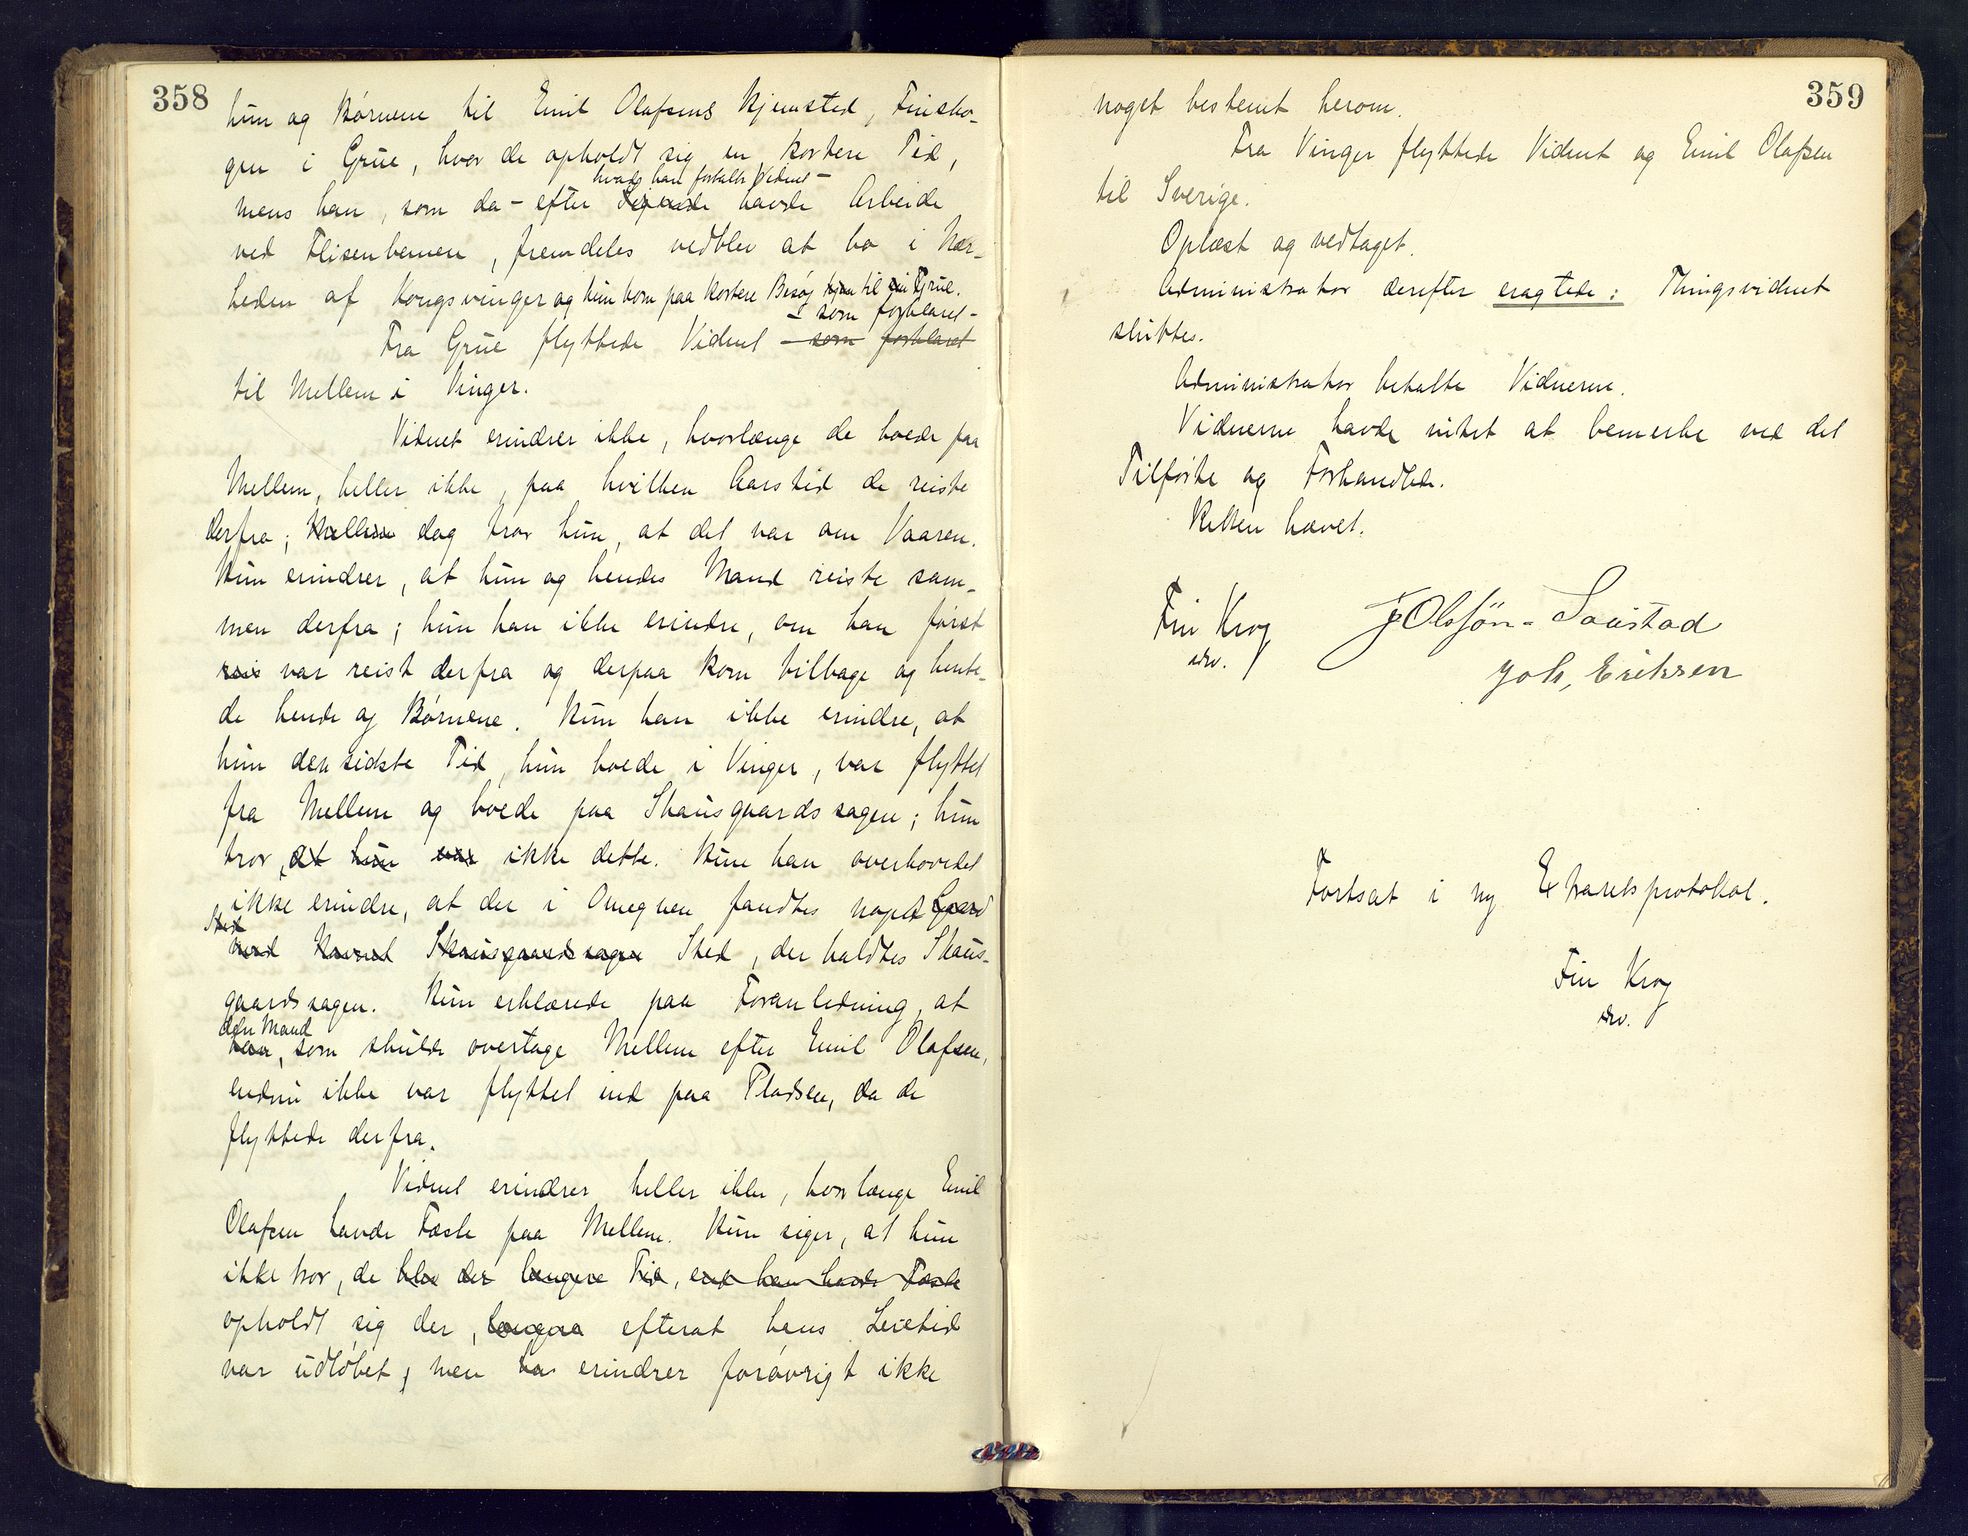 358
hun og Børnene til Emil Olafsens Hjemsted, Finsko-
gen i Grue, hvor de opholdt sig en kortere Tid,
hvad han fortalte Vidnet –
mens han, som da – efter havde Arbeide
ved Flisenbanen, fremdeles vedblev at bo i Nær-
heden af Kongsvinger og kun kom paa kortere Besøg til Grue.
– som forklaret –
Fra Grue flyttede Vidnet – som forklaret
til Mellem i Vinger.
Vidnet erindrer ikke, hvorlænge de boede paa
Mellem, heller ikke, paa hvilken Aarstid de reiste
derfra; dog tror hun, at det var om Vaaren.
Hun erindrer, at hun og hendes Mand reiste sam-
men derfra; hun kan ikke erindre, om han først
reis var reist derfra og derpaa kom tilbage og hente-
de hende og Børnene. Hun kan ikke erindre, at
hun den sidste Tid, hun boede i Vinger, var flyttet
fra Mellem og boede paa Skausgaardssagen; hun
tror at hun var ikke dette. Hun kan overhovedet
ikke erindre, at der i Omegnen fandtes noget Gaard
Sted
med Havnet Skausgaardssagen Sted, der kaldtes Skaus-
gaardssagen. Hun erklærede paa Foranledning, at
den Mand
, som skulde overtage Mellem efter Emil Olafsen,
endnu ikke var flyttet ind paa Pladsen, da de
flyttede derfra.
Vidnet erindrer heller ikke, hvorlænge Emil
Olafsen havde Fæste paa Mellem. Hun siger, at hun
ikke tror, de blev der længere Tid, end han havde Fæste
opholdt sig der, længere efterat hans Leietid
var udløbet, men erindrer forøvrigt ikke
359
noget bestemt herom.
Fra Vinger flyttede Vidnet og Emil Olafsen
til Sverige.
Oplæst og vedtaget.
Administrator derefter eragtede: Thingsvidnet
sluttes.
Administrator betalte Vidnerne.
Vidnerne havde intet at bemerke ved det
Tilførte og Forhandlede.
Retten hævet.
Fin Krog
J Olsøn-Saustad
Joh, Eriksen
Fortsat i ny Extraretsprotokol.
Fin Krog